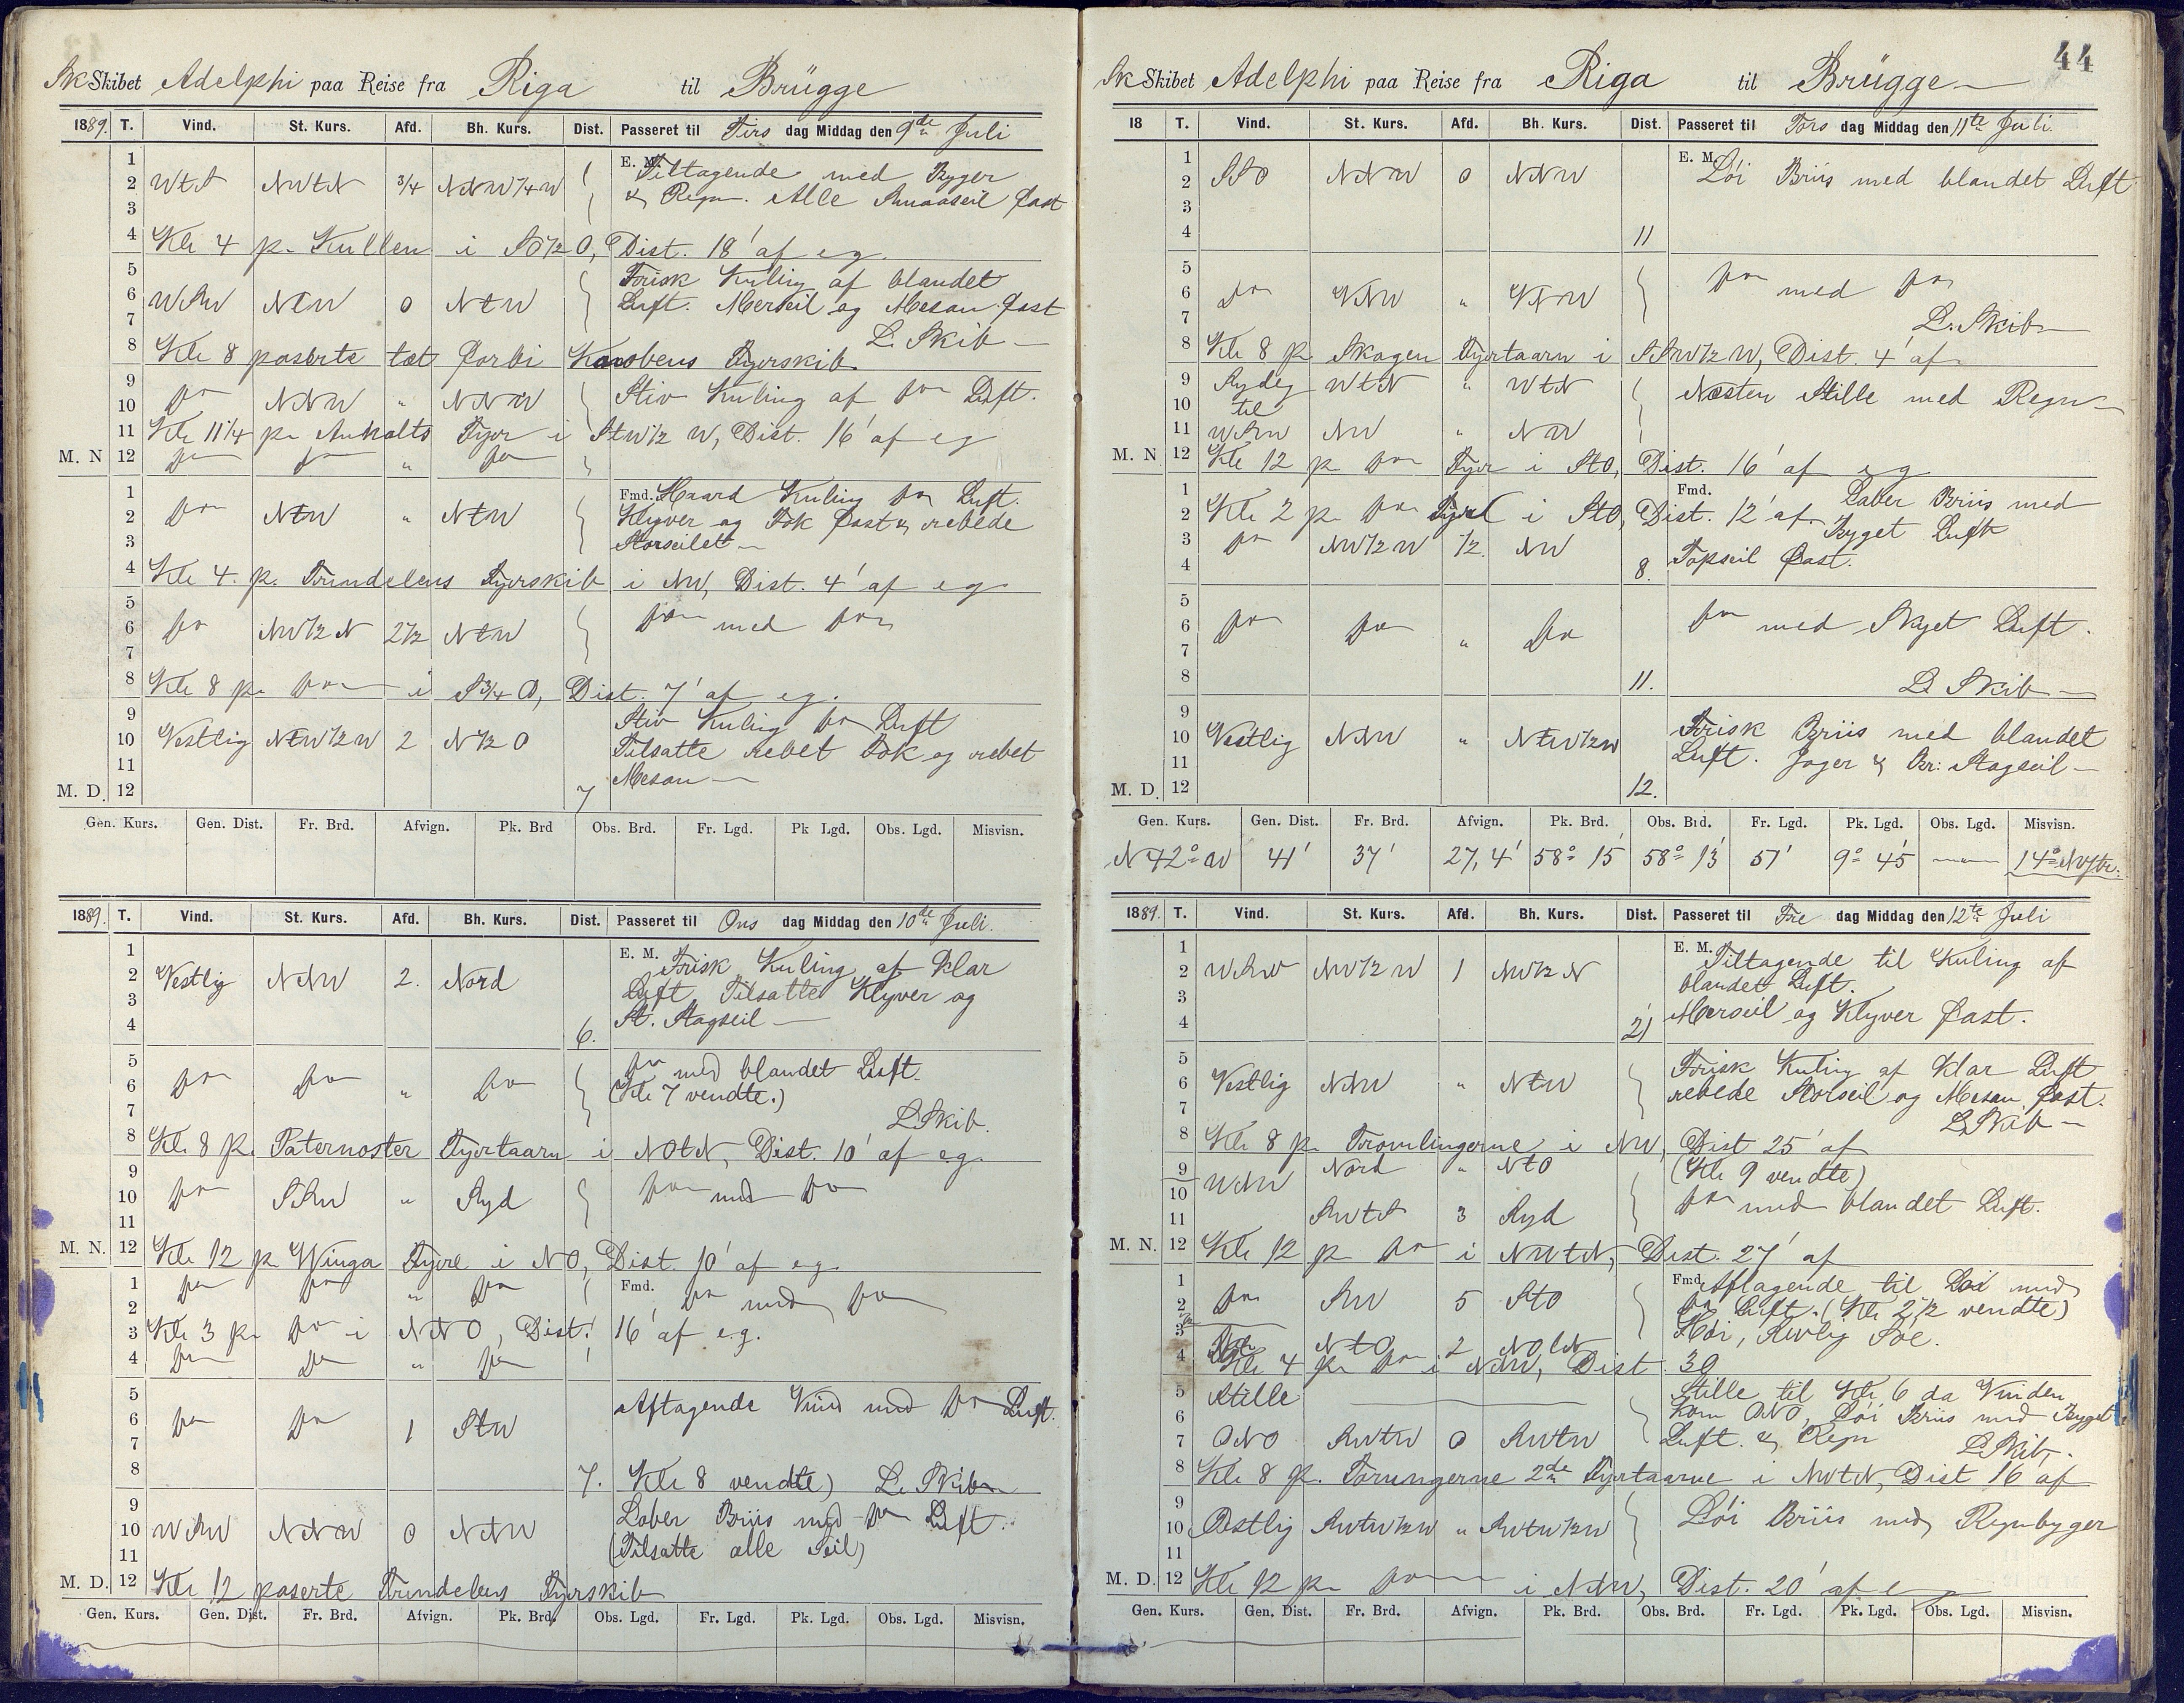 Sk Skibet Adelphi paa Reise fra Riga til Brügge
1889. T. Vind. St. Kurs. Afd. Bh. Kurs. Dist. Passeret til Tirs dag Middag den 9de Juli
1 E. M. Tiltagende med Byger
2 WtS NWtN 3/4 NNW1/4W & Regn. Alle Smaaseil fast
3
4 Kl. 4 p. Kullen i SO1/2O, Dist. 18' af eg.
5 Frisk Kuling af blandet
6 WSW NtW 0 NtW Luft. Merseil og Mesan fast
7 L. Skib
8 Kl. 8 paserte tæt forbi Fyrskib
9 do NNW " NNW Stiv Kuling af do Luft.
10
11 Kl. 11 1/4 p. Anholts Fyr i StW1/2W, Dist. 16' af eg
M. N 12 do do " do
1 Fmd. Haard Kuling do Luft.
2 do NtW " NtW Klyver og Fok fast & rebede
3 Storseilet
4 Kl. 4. p. Trindelens Fyrskib i NW, Dist. 4' af eg
5
6 do NW1/2N 2 1/2 NtW do med do
7
8 Kl. 8 p. do i S3/4O, Dist. 7' af eg.
9 Stiv Kuling do Luft
10 Vestlig NtW1/2W 2 N1/2O Tilsatte rebet Fok og rebet
11 Mesan
M. D. 12 7
Gen. Kurs. Gen. Dist. Fr. Brd. Afvign. Pk. Brd Obs. Brd. Fr. Lgd. Pk Lgd. Obs. Lgd. Misvisn.
1889. T. Vind. St. Kurs. Afd. Bh. Kurs. Dist. Passeret til Ons dag Middag den 10de Juli.
1 E. M. Frisk Kuling af klar
2 Vestlig NNW 2. Nord Luft Tilsatte Klyver og
3 St. Stagseil
4 6.
5 do med blandet Luft.
6 do do " do (Kl. 7 vendte.)
7 L. Skib.
8 Kl. 8 p. Paternoster Fyrtaarn i NOtN, Dist. 10' af eg.
9
10 do SSW " Syd do med do
11
M. N. 12 Kl. 12 p. Winga Fyre i NO, Dist. 10' af eg.
1 do do " do Fmd. do med do
2
3 Kl. 3 p. do i NNO, Dist. 16' af e.g.
4 do do " do
5 Aftagende Vind med do Luft.
6 do do 1 StW
7
8 7. Kl. 8 vendte) L. Skib
9 Laber Briis med do Luft.
10 WSW NNW 0 NNW (Tilsatte alle Seil)
11
M. D. 12 Kl. 12 paserte Trindelens Fyrskib
Gen. Kurs. Gen. Dist. Fr. Brd. Afvign. Pk. Brd. Obs. Lgd. Fr. Lgd. Pk. Lgd. Obs. Lgd. Misvisn.
44
Sk Skibet Adelphi paa Reise fra Riga til Brügge
18 T. Vind. St. Kurs. Afd. Bh. Kurs. Dist. Passeret til Tors dag Middag den 11te Juli.
1 E. M.
2 SSO NNW 0 NNW Löi Briis med blandet Luft
3
4 11
5 do med do
6 do NNW " NNW
7 L. Skib
8 Kl. 8 p. Skagen Fyrtaarn i SSW1/2W, Dist. 4' af
9 Sydlig WtN " WtN Næsten Stille med Regn
10 til
11 WSW NW " NW
M. N 12 Kl. 12 p. do Fyr i StO, Dist. 16' af eg
1 Fmd. Laber Briis med
2 Kl. 2 p. do Fyr i StO, Dist. 12' af. Byget Luft
3 do NW1/2W 1/2. NW
4 8. Topseil fast.
5
6 do do " do do med Skyet Luft.
7
8 11. L. Skib
9 Frisk Briis med blandet
10 Vestlig NNW " NtW1/2W Luft. Jager & Br: Stagseil
11
M. D. 12 12.
Gen. Kurs. Gen. Dist. Fr. Brd. Afvign. Pk. Brd. Obs. Brd. Fr. Lgd. Pk. Lgd. Obs. Lgd. Misvisn.
N 42° W 41' 37' 27,4' 58° 15' 58° 13' 51' 9° 45' 14°
1889. T. Vind. St. Kurs. Afd. Bh. Kurs. Dist. Passeret til Fre dag Middag den 12te Juli
1 E. M. Tiltagende til Kuling af
2 WSW NW1/2W 1 NW1/2N blandet Luft.
3 Merseil og Klyver fast.
4 21
5 Frisk Kuling af klar Luft
6 Vestlig NNW " NtW rebede Storseil og Mesan fast.
7 L. Skib
8 Kl. 8 p. Tromlingerne i NW, Dist 25' af
9 WNW Nord " NtO (Kl. 9 vendte)
10 do med blandet Luft.
11 SWtS 3 Syd
M. N. 12 Kl. 12 p. do i NWtN, Dist. 27' af
1 Fmd. Aftagende til Löi med
2 do SW 5 StO do Luft. (Kl. 2 1/2 vendte)
3 NtO 2 NOtN Höi, Sole.
4 Kl. 4 p. do i NNW, Dist. 30
5 Stille Stille til Kl. 6 da Vinden
6 kom ONO, Löi Briis med Byget
7 ONO SWtW 0 SWtW Luft. & Regn L. Skib.
8 Kl. 8 p. Torungerne 2de Fyrtaarne i NWtN, Dist 16' af
9
10 Ostlig SWtW1/2W " SWtW1/2W Löi Briis med Regnbyger
11
M. D. 12 Kl. 12 p. do i NNW, Dist. 20' af e g
Gen. Kurs. Gen. Dist. Fr. Brd. Afvign. Pk. Brd. Obs. Brd. Fr. Lgd. Pk. Lgd. Obs. Lgd. Misvisn.